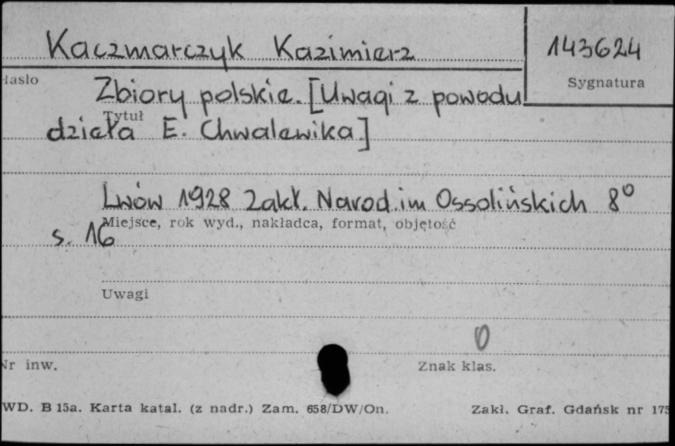 Kaczmarczyk Kazimierz
143624
Hasło
Sygnatura
Zbiory polskie. [Uwagi z powodu
Tytuł
dzieła E. Chwalewika.]
Lwów 1928 Zakł. Narod. im Ossolińskich 8°
Miejsce, rok wyd., nakładca, format, objętość
s. 16
Uwagi
0
Nr inw.
Znak klas.
WD. B 15a. Karta katal. (z nadr.) Zam. 658/DW/On.
Zakł. Graf. Gdańsk nr 175